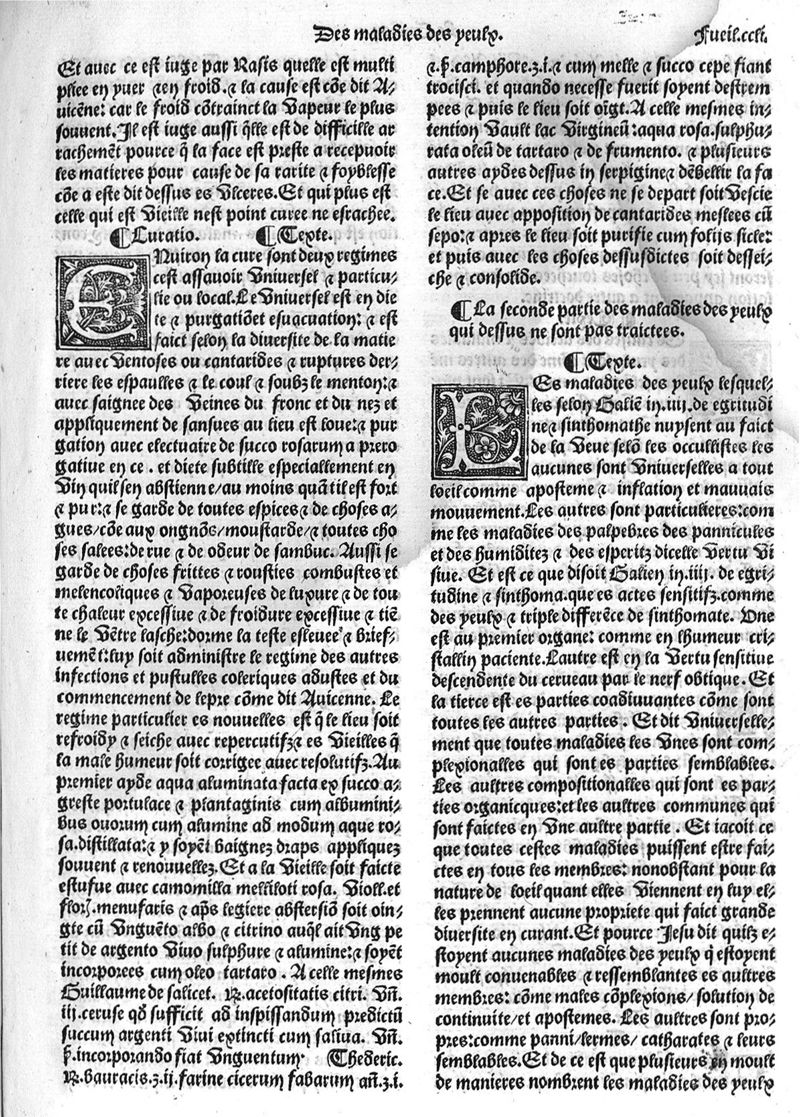 Des maladies des yeulx.
Fueil.ccli.
Et avec ce est iuge par Rasis quelle est multi
pliee en yuer ⁊ en froid. ⁊ la cause est cõe dit A⸗
uicẽne: car le froid cõtrainct la vapeur le plus
souuent. Il est iuge aussi q̃lle est de difficille ar
rachemẽt pource q̃ la face est preste a recepuoir
les matieres pour cause de sa rarite ⁊ foyblesse
cõe a este dit dessus es vlceres. Et qui plus est
celle qui est vieille nest point curee ne esrachee.
¶ Curatio. ¶ Texte.
ENuiron la cure sont deux regimes
cest assauoir vniuersel ⁊ particu⸗
lie ou local. Le vniuersel est en die
te ⁊ purgatiõ et esuacuation: ⁊ est
faict selon la diuersite de la matie
re auec ventoses ou cantarides ⁊ ruptures der⸗
riere les espaulles ⁊ le coul ⁊ soubz le menton: ⁊
auec saignee des veines du fronc et du nez et
appliquement de sansues au lieu est loue: ⁊ pur
gation auec electuaire de succo rosarum a prero
gatiue en ce . et diete subtille especiallement en
vin quil sen abstienne/au moins quãt il est fort
⁊ pur: ⁊ se garde de toutes espices ⁊ de choses a⸗
gues/cõe aux ongnõs/moustarde/⁊ toutes cho
ses salees: de rue ⁊ de odeur de sambuc. Aussi se
garde de choses frittes ⁊ rousties combustes et
melencoliques ⁊ vaporeuses de luxure ⁊ de tou
te chaleur excessiue ⁊ de froidure excessiue ⁊ tiẽ
ne le vẽtre lasche: dorme la teste esleuee ⁊ brief⸗
uemẽt: luy soit administre le regime des autres
infections et pustulles coleriques adustes et du
commencement de lepre cõme dit Auicenne. Le
regime particulier es nouuelles est q̃ le lieu soit
refroidy ⁊ seiche auec repercutifz ⁊ es vieilles q̃
la male humeur soit corrigee auec resolutifz. Au
premier ayde aqua aluminata facta ex succo a⸗
greste portulace ⁊ plantaginis cum albumini⸗
bus ouorum cum alumine ad modum aque ro⸗
sa.distillata: ⁊ y soyẽt baignez draps appliquez
souuent ⁊ renouuellez. Et a la vieille soit faicte
estufue auec camomilla melliloti rosa. Violl.et
florꝫ. menufaris ⁊ aps̃ legiere abstersiõ soit oin⸗
gte cũ vnguẽto albo ⁊ citrino auq̃l ait vng pe
tit de argento viuo sulphure ⁊ alumine: ⁊ soyẽt
incorporees cum oleo tartaro . A celle mesmes
Guillaume de salicet. ℞. acetositatis citri. vñ.
iij. ceruse qd̃ sufficit ad inspissandum predictũ
succum argenti viui extincti cum saliua. vñ.
p̃. incorporando fiat vnguentum. Thederic.
℞. bauracis.ʒ.ij. farine cicerum fabarum añ.ʒ.i.
⁊.p̃. camphore.ʒ.i. ⁊ cum melle ⁊ succo cepe fiant
trocisci. et quando necesse fuerit soyent destrem
pees ⁊ puis le lieu soit oĩgt. A celle mesmes in⸗
tention vault lac virgineũ: aqua rosa.sulphu⸗
rata oleũ de tartaro ⁊ de frumento. ⁊ plusieurs
autres aydes dessus in serpigine ⁊ dẽbellir la fa
ce. Et se auec ces choses ne se depart soit vescie
le lieu avec apposition de cantarides meslees cũ
sepo: ⁊ apres le lieu soit purifie cum folijs sicle:
et puis avec les choses dessusdictes soit dessei⸗
che ⁊ consolide.
¶ La seconde partie des maladies des yeulx
qui dessus ne sont pas traictees.
¶ Texte.
LEs maladies des yeulx lesquel⸗
les selon Galiẽ in.iiij.de egritudi
ne ⁊ sinthomathe nuysent au faict
de la veue selõ les occullistes les
aucunes sont vniuerselles a tout
loeil comme aposteme ⁊ inflation et mauuais
mouuement. Les autres sont particulieres: com
me les maladies des palpebres des pannicules
et des humiditez ⁊ des esperitz dicelle vertu vi
siue. Et est ce que disoit Galien in.iiij. de egri⸗
tudine ⁊ sinthoma.que es actes sensitifz.comme
des yeulx ⁊ triple differẽce de sinthomate. Une
est au premier organe: comme en lhumeur cri⸗
stallin paciente. Lautre est en la vertu sensitiue
descendente du cerueau par le nerf obtique. Et
la tierce est es parties coadiuuantes cõme sont
toutes les autres parties . Et dit vniuerselle⸗
ment que toutes maladies les vnes sont com⸗
plexionalles qui sont es parties semblables.
Les aultres compositionalles qui sont es par⸗
ties organicques: et les aultres communes qui
sont faictes en vne aultre partie . Et iacoit ce
que toutes cestes maladies puissent estre fai⸗
ctes en tous les membres: nonobstant pour la
nature de loeil quant elles viennent en luy el⸗
les prennent aucune propriete qui faict grande
diuersite en curant. Et pource Jesu dit quilz e⸗
stoyent aucunes maladies des yeulx q̃ estoyent
moult conuenables ⁊ ressemblantes es aultres
membres: cõme males cõplexions/ solution de
continuite/et apostemes. Les aultres sont pro⸗
pres: comme panni/lermes/ catharates ⁊ leurs
semblables. Et de ce est que plusieurs en moult
de manieres nombrent les maladies des yeulx